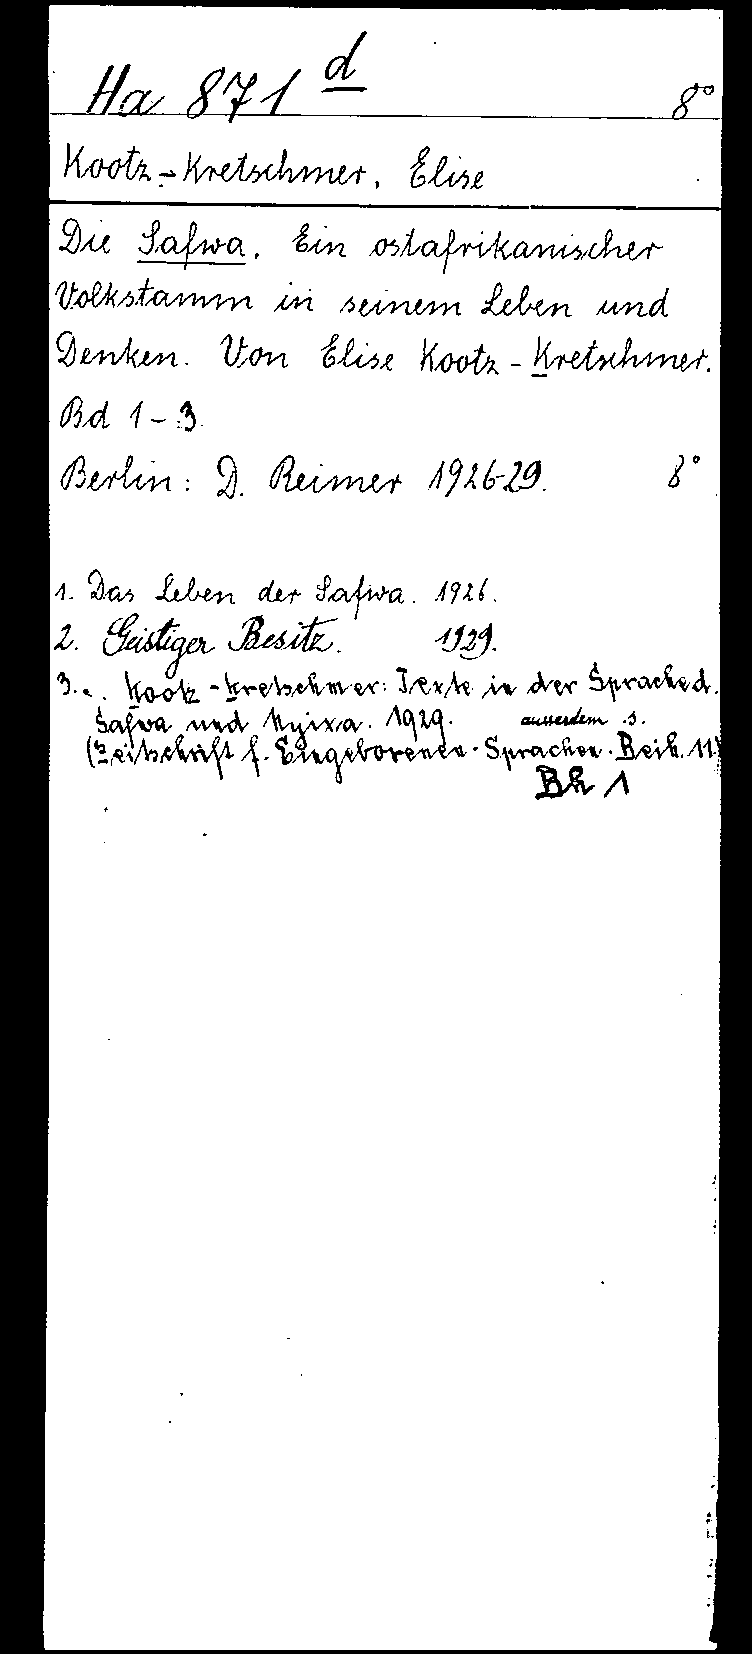 Ha 871 d 8°
Kootz-Kretschmer, Elise
Die Safwa. Ein ostafrikanischer
Volkstamm in seinem Leben und
Denken. Von Elise Kootz-Kretschmer.
Bd 1-3.
Berlin: D. Reimer 1926-29. 8°
1. Das Leben der Safwa. 1926.
2. Geistiger Besitz. 1929.
3. Kootz-Kretschmer: Texte in der Sprache d.
Safwa und Nyixa. 1929. ausserdem s.
(Zeitschrift f. Eingeborenen-Sprachen. Beih. 11)
Bh 1